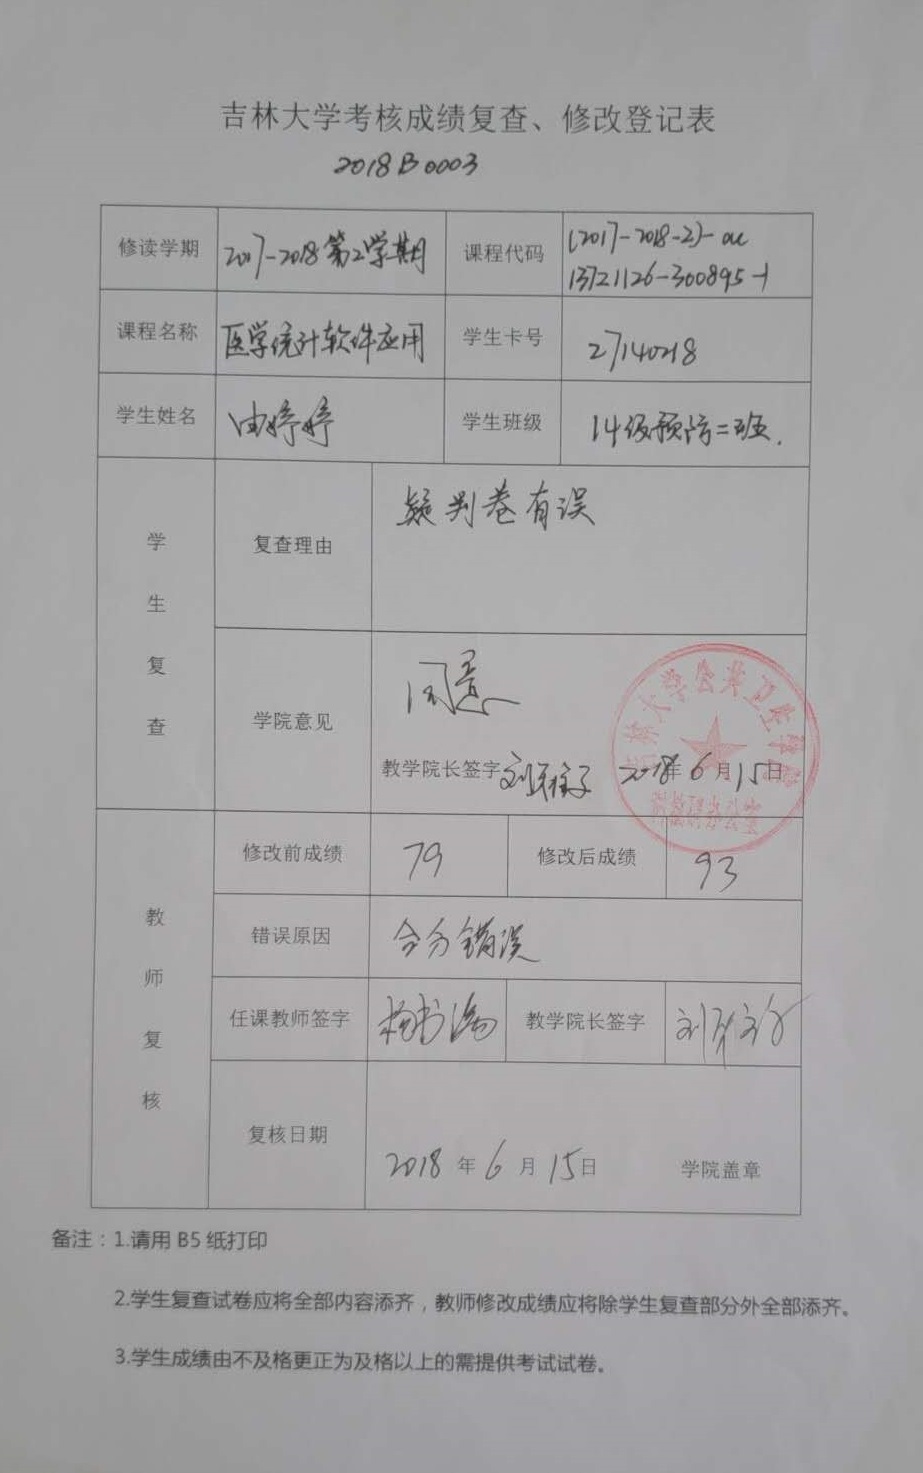 吉林大学考核成绩复查、修改登记表
2018B0003
修读学期 2017-2018第2学期 课程代码 (2017-2018-2)-ac
13721126-300895-1
课程名称 医学统计软件应用 学生卡号 27140218
学生姓名 由婷婷 学生班级 14级预防二班.
学生复查
复查理由 疑判卷有误
学院意见 同意
教学院长签字 2018年6月15日
吉林大学公共卫生学院
修改前成绩 79 修改后成绩 93
教师复核
错误原因 合分错误
任课教师签字 教学院长签字
复核日期 2018年6月15日 学院盖章
备注：1.请用B5纸打印
2.学生复查试卷应将全部内容添齐，教师修改成绩应将除学生复查部分外全部添齐。
3.学生成绩由不及格更正为及格以上的需提供考试试卷。